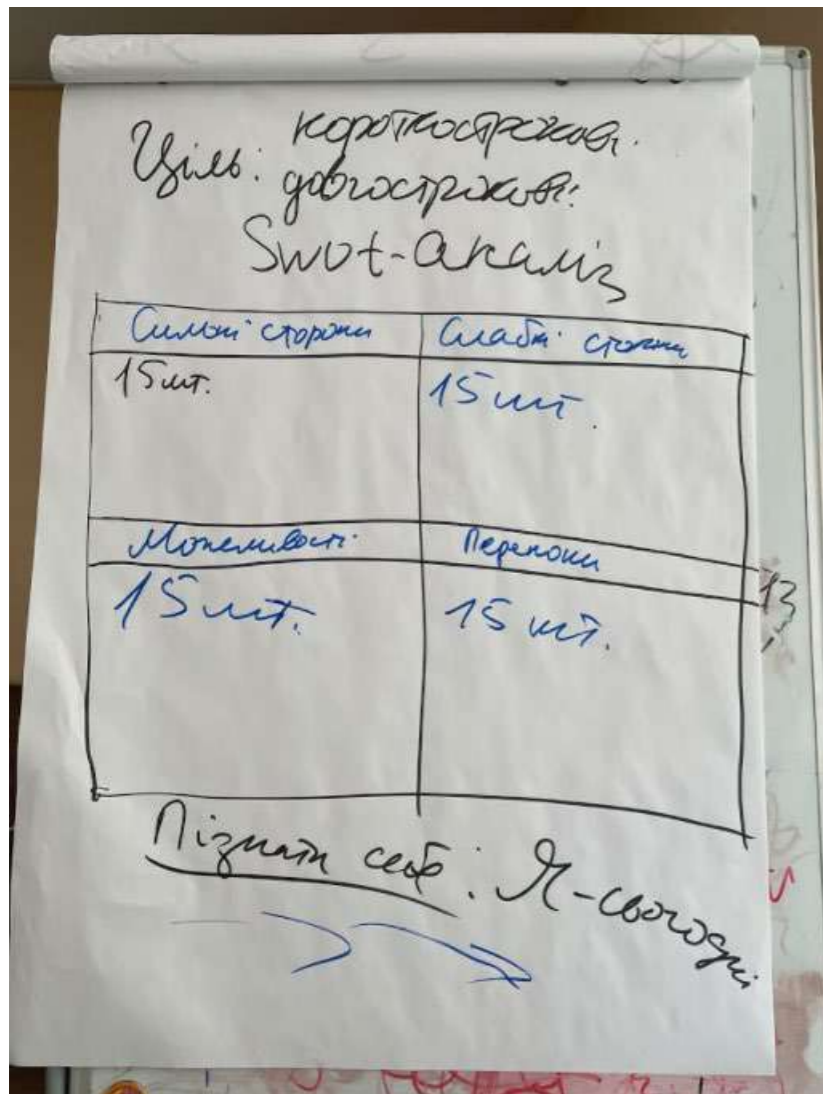 Ціль: короткострокові.
довгострокові:
Swot-аналіз
Сильні сторони
Слабкі сторони
15шт.
15шт.
Можливості
Перепони
15шт.
15шт.
Пізнати себе: Я-сьогодні
13